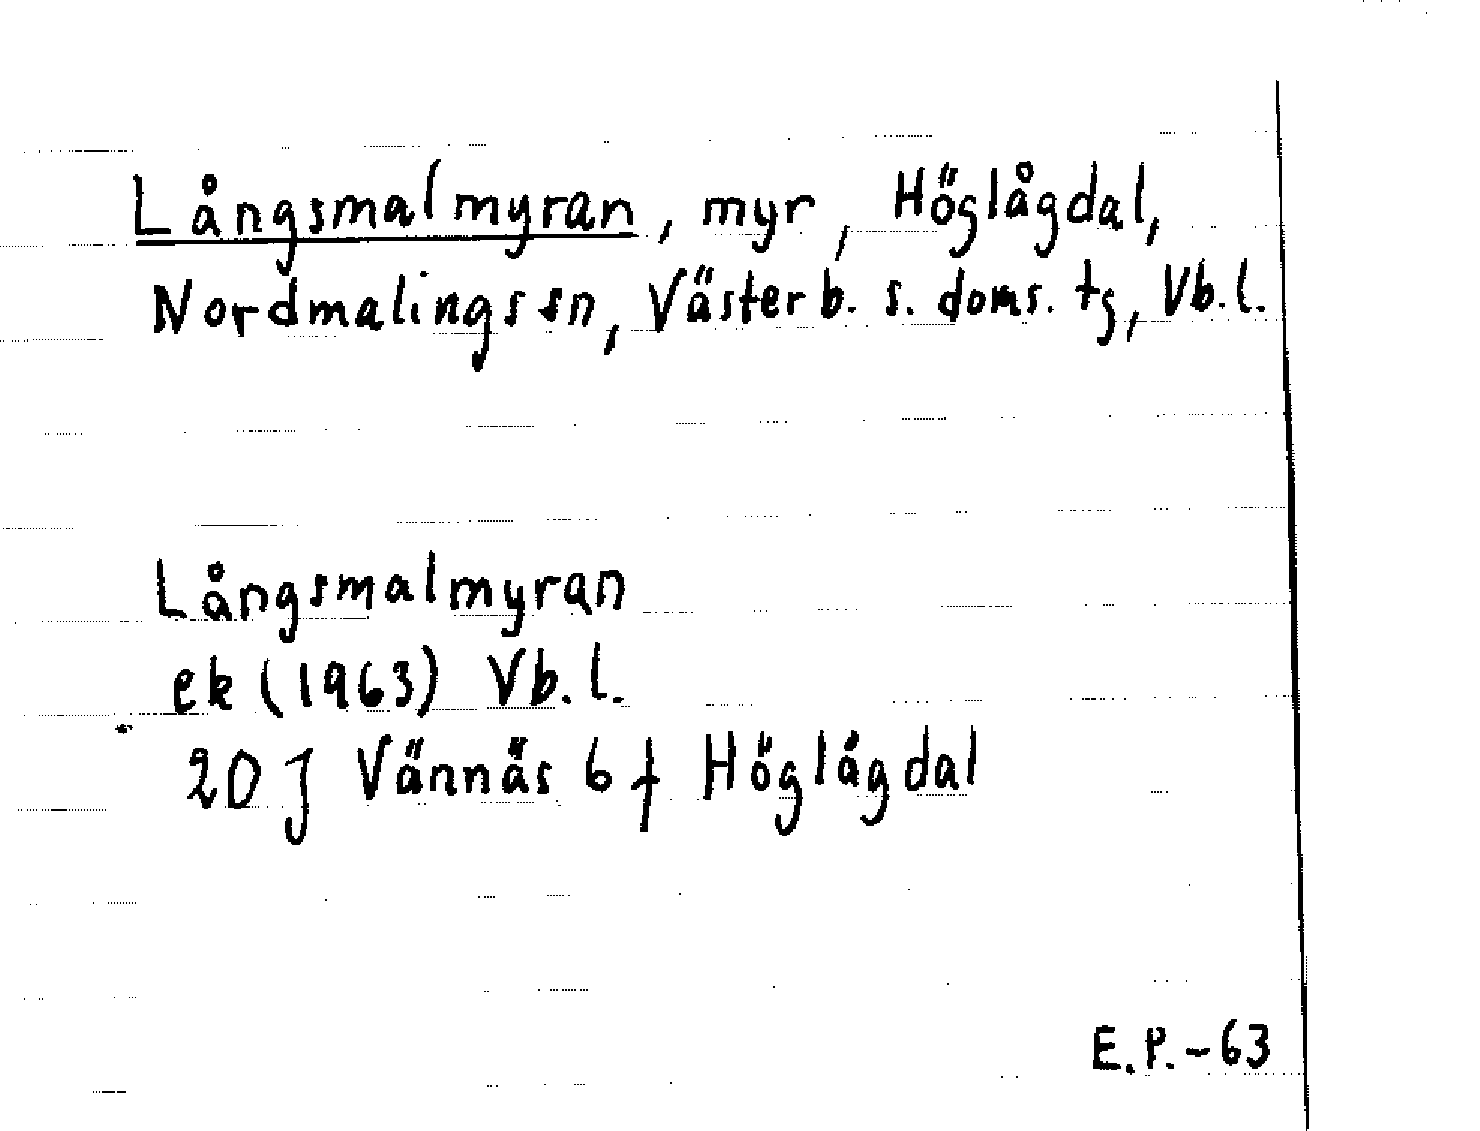 Långsmalmyran, myr, Höglågdal,
Nordmalings sn, Västerb. s. doms. tg, Vb.l.
Långsmalmyran
ek (1963) Vb.l.
20 J Vännäs 6 f Höglågdal
E.P.-63